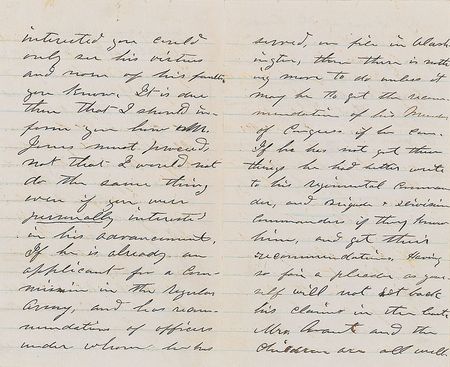 interested you could
only see his virtues
and none of his faults
you know. It is due
then that I should in-
form you how Mr.
Jones must proceed,
not that I would not
do the same thing
even if you were
personally interested
in his advancement.
If he is already an
applicant for a com-
mission in the regular
Army, and has recom-
mendations of officers
under whom he has
served, on file in Wash-
ington, then there is noth-
ing more to do unless it
may be to get the recom-
mendation of his Member
of Congress if he can.
If he has not got these
things he had better write
to his regimental Comman-
der, and brigade & division
commanders if they know
him, and get their
recommendations. Having
so fair a pleader as your-
self will not set back
his claims in the least.
Mrs. Grant and the
children are all well.